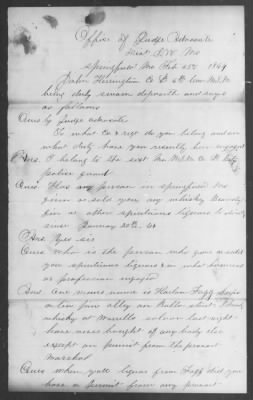 Office of Judge Advocate
Dist. S.W. Mo
Springfield Mo Feb 1864
John Herington Co 6th Cav M.S.M.
being duly sworn deposeth and says
as follows
Ques by Judge Advocate
To what Co & regt do you belong and on
what duty have you recently been engaged
Ans. I belong to the Mo Co
police guard
Ques Has any person in Springfield Mo
given or sold you any whisky Brandy
Gin or other spirituous liquors to drink
since January 20th 64
Ans. Yes sir
Ques who is the person who gave or sold
you spirituous liquors & in what business
or profession engaged
Ans. One mans name is Harlan Fagg
a ten pin alley on street
whisky at saloon last night
have never bought of any body else
except on permit from the provost
Marshal
Ques when you got liquor from Fagg did you
have a permit from any provost